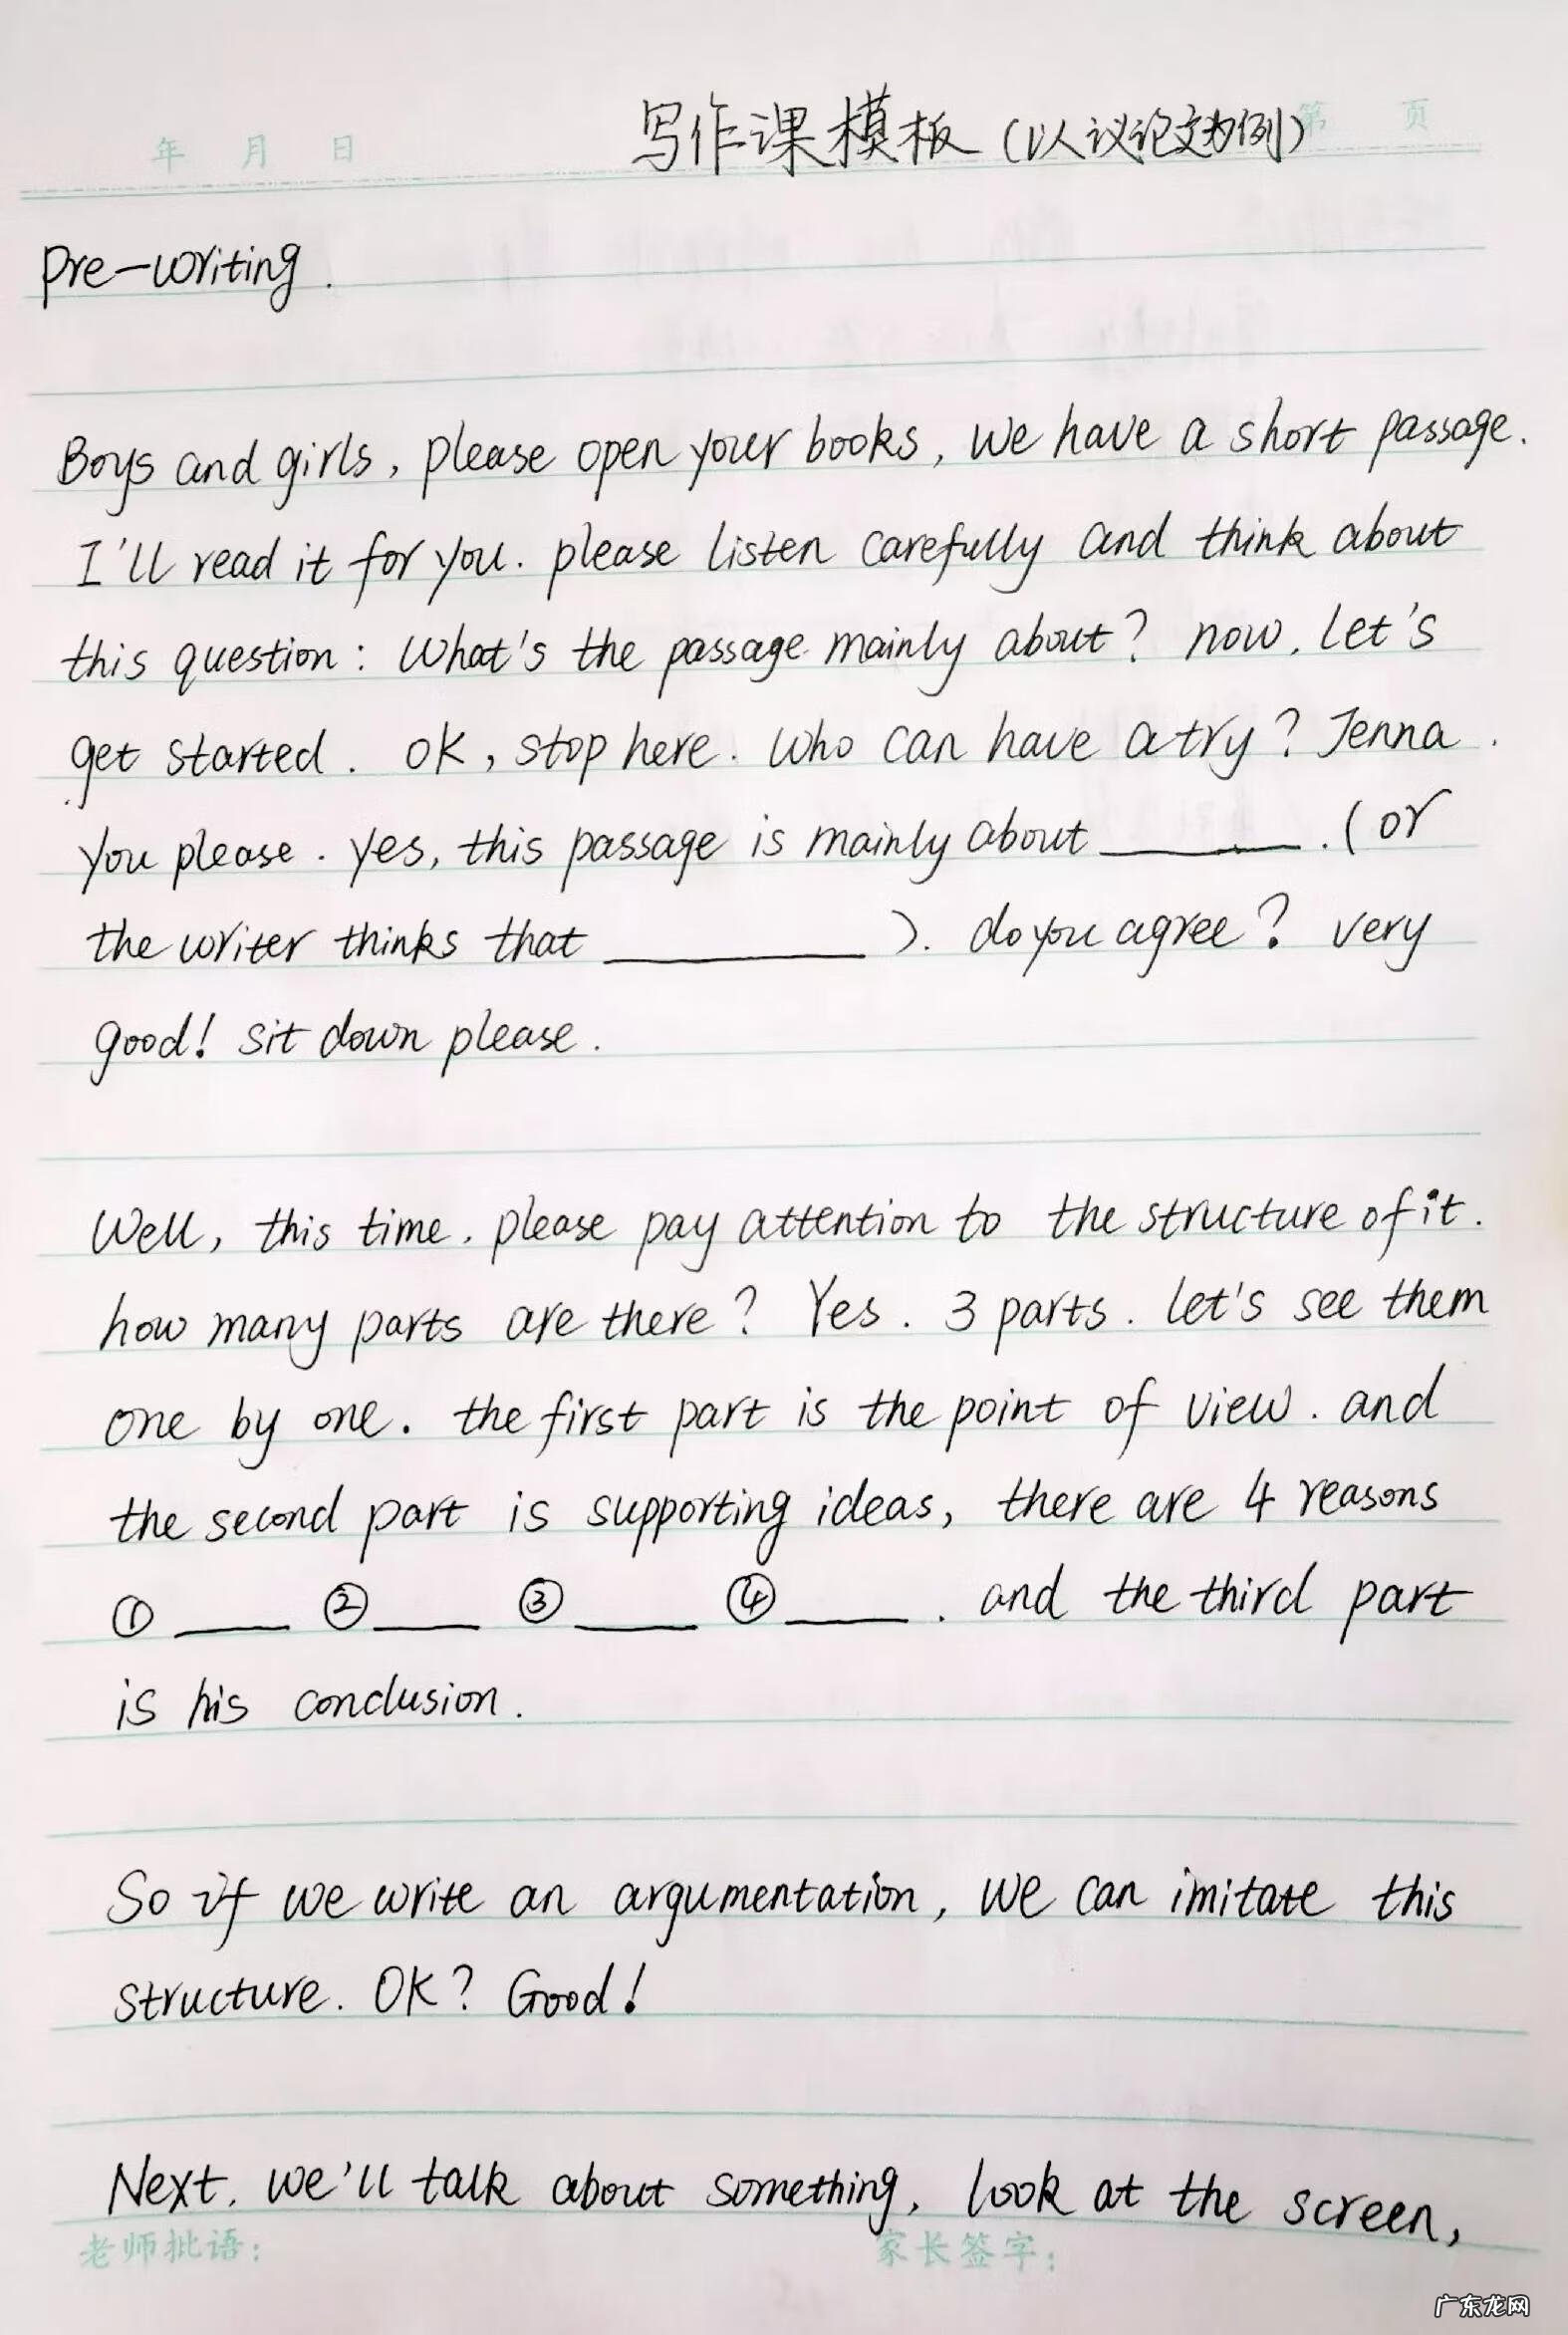 写作课模板（以议论文为例）
年 月 日 第 页
Pre-writing.
Boys and girls, please open your books, we have a short passage.
I'll read it for you. please listen carefully and think about
this question: What's the passage mainly about? now, let's
get started. ok, stop here. who can have a try? Jenna.
you please. yes, this passage is mainly about ______. (or
the writer thinks that ________). do you agree? very
good! sit down please.
Well, this time, please pay attention to the structure of it.
how many parts are there? Yes. 3 parts. let's see them
one by one. the first part is the point of view. and
the second part is supporting ideas, there are 4 reasons
① ____ ② ____ ③ ____ ④ ____. and the third part
is his conclusion.
So if we write an argumentation, we can imitate this
structure. OK? Good!
Next, we'll talk about something, look at the screen,
老师批语： 家长签字：
广东龙网